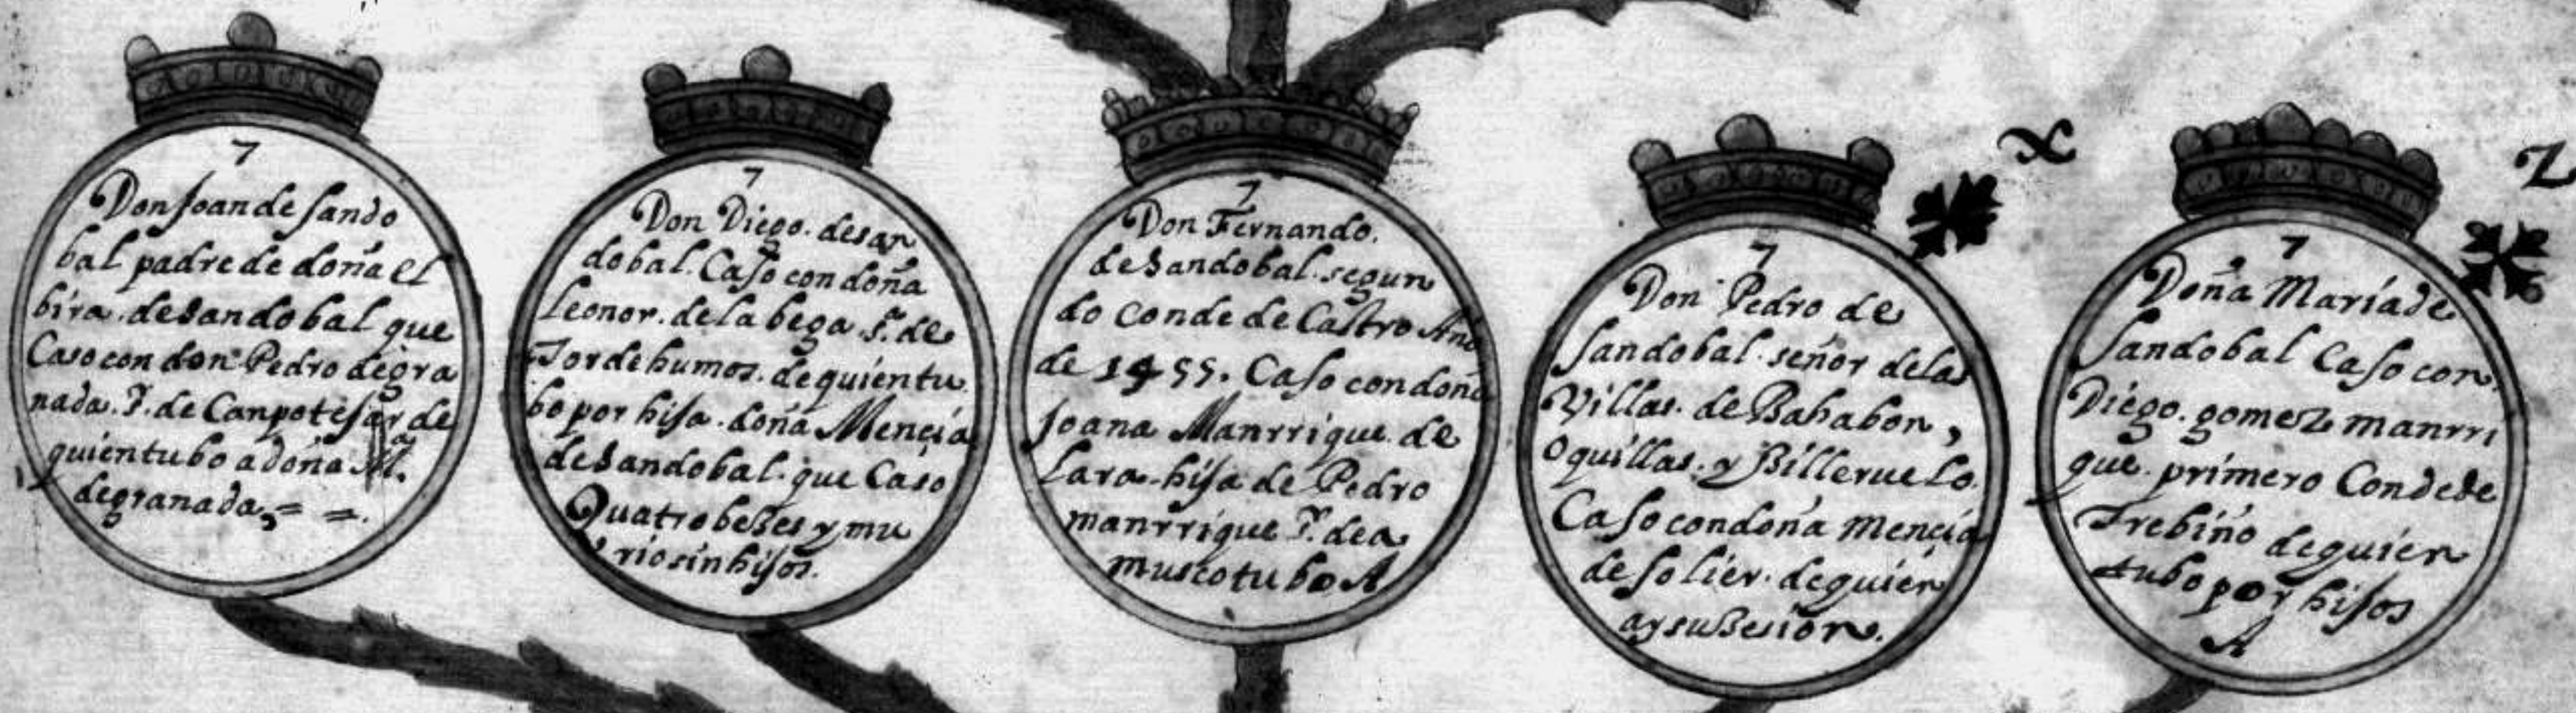 7
Don Joan de Sando
bal padre de doña el
bira. de Sandobal que
Caso con don Pedro de gra
nada. S. de Canpotejar de
quien tubo a doña M.
de granada, = =.
7
Don Diego. de san
dobal. Caso con doña
Leonor. de la bega. S. de
Tordehumos. de quien tu
bo por hija. doña Mençia
de Sandobal. que Caso
Quatro beses y mu
rio sin hijos.
7
Don Fernando.
de Sandobal. segun
do Conde de Castro Año
de 1455. Caso con doña
Joana Manrrique de
Lara. hija de Pedro
manrrique S. de a
musco tubo A
X
7
Don Pedro de
Sandobal. señor de las
Villas. de Bahabon,
Oquillas. y Billeruelo.
Caso con doña Mençia
de Solier. de quien
ay susesion.
Z
7
Doña Maria de
Sandobal Caso con.
Diego. gomez manrri
que. primero Conde de
Trebiño de quien
tubo por hijos
A